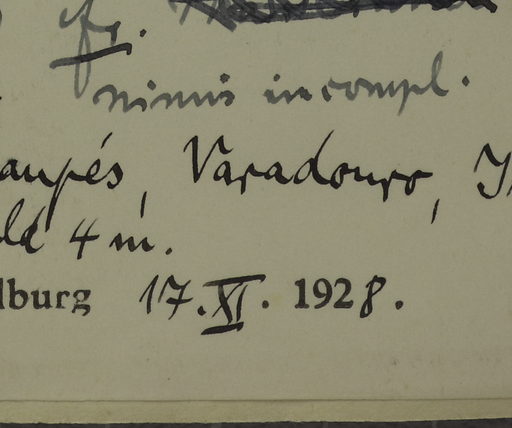 fr.
nimis incompl.
aupés, Varadouro,
4 m.
lburg 17.XI. 1928.